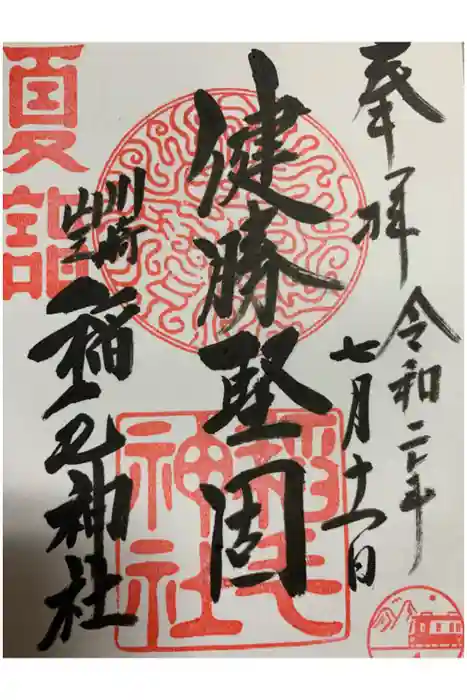 奉拝
令和二年
七月十一日
健勝堅固
川崎
山王
稲毛神社
夏詣
稲毛
神社